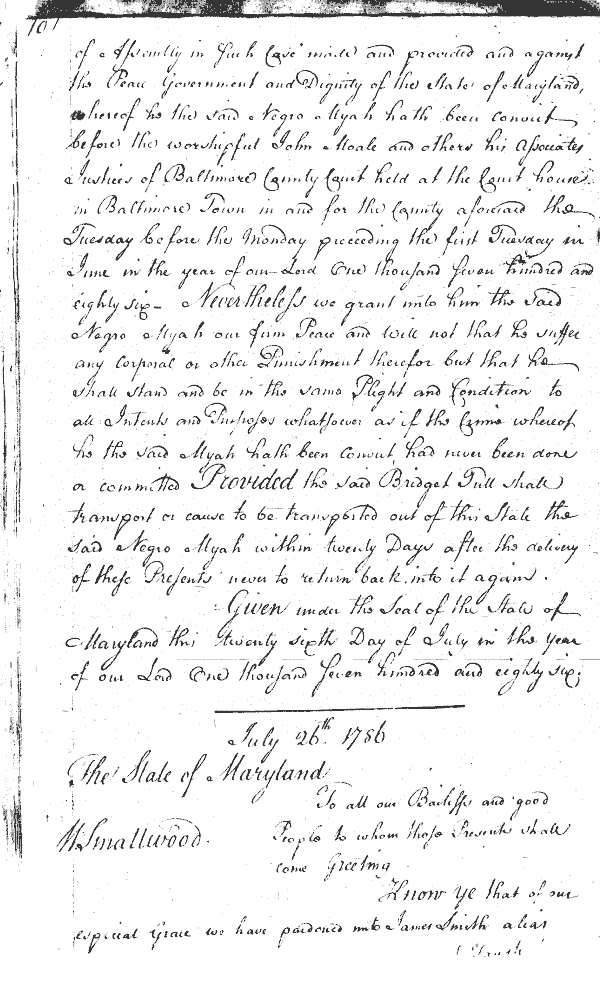 101
of Assembly in such Case made and provided and against
the Peace Government and Dignity of the State of Maryland,
whereof he the said Negro Myah hath been convict
before the worshipful John Moale and others his Associates
Justices of Baltimore County Court held at the Court house
in Baltimore Town in and for the County aforesaid the
Tuesday before the Monday preceeding the first Tuesday in
June in the year of our Lord One thousand seven hundred and
eighty six – Nevertheless we grant unto him the said
Negro Myah our firm Peace and will not that he suffer
any corporal or other Punishment therefor but that he
shall stand and be in the same Plight and Condition to
all Intents and Purposes whatsoever as if the Crime whereof
he the said Myah hath been convict had never been done
or committed Provided the said Bridget Tull shall
transport or cause to be transported out of this State the
said Negro Myah within twenty Days after the delivery
of these Presents never to return back into it again.
Given under the Seal of the State of
Maryland this twenty sixth Day of July in the year
of our Lord One thousand seven hundred and eighty six;
July 26th. 1786
The State of Maryland
To all our Bailiffs and good
W. Smallwood. People to whom those Presents shall
come Greeting
Know Ye that of our
especial Grace we have pardoned unto James Smith alias